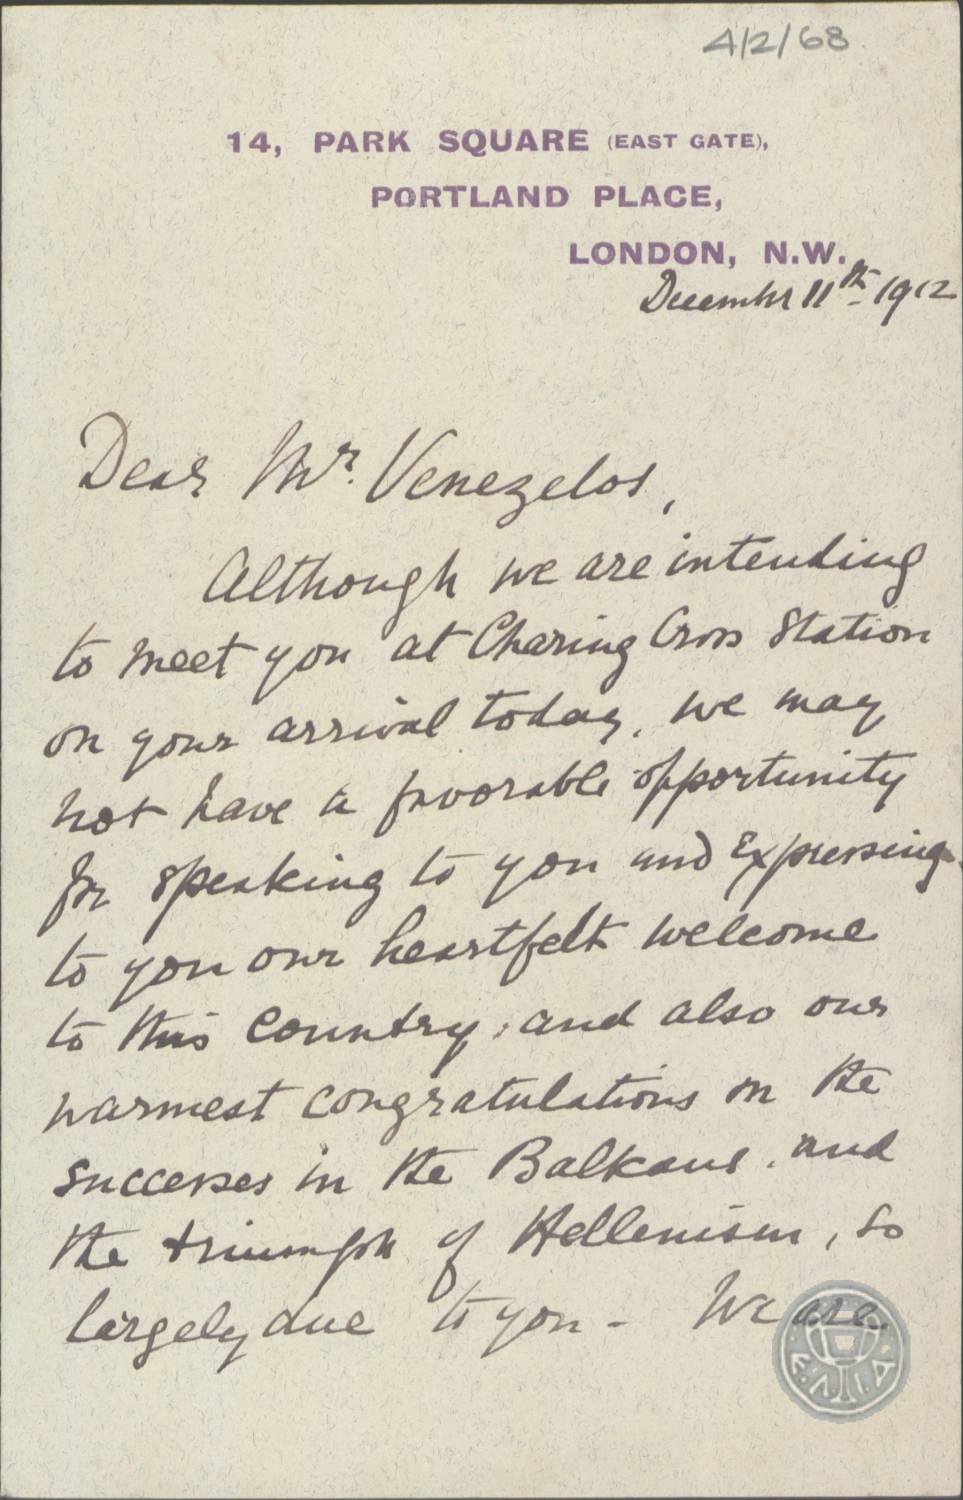 4/2/68
14, PARK SQUARE (EAST GATE),
PORTLAND PLACE,
LONDON, N.W.
December 11th 1912
Dear Mr. Venezelos,
Although we are intending
to meet you at Charing Cross Station
on your arrival today, we may
not have a favorable opportunity
for speaking to you and expressing
to you our heartfelt welcome
to this country, and also our
warmest congratulations on the
successes in the Balkans, and
the triumph of Hellenism, so
largely due to you - We are
Ε.Λ.Ι.Α